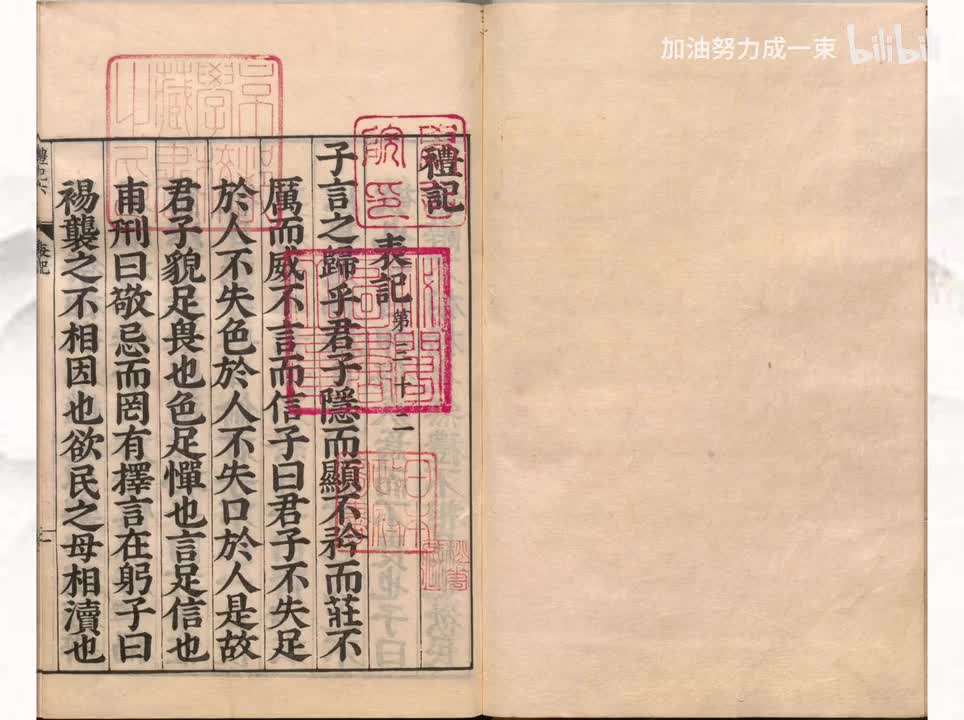 加油努力成一束 bilibili
禮記
表記第三十二
子言之歸乎君子隱而顯不矜而莊不
厲而威不言而信子曰君子不失足
於人不失色於人不失口於人是故
君子貌足畏也色足憚也言足信也
甫刑曰敬忌而罔有擇言在躬子曰
裼襲之不相因也欲民之母相瀆也
禮記六
表記